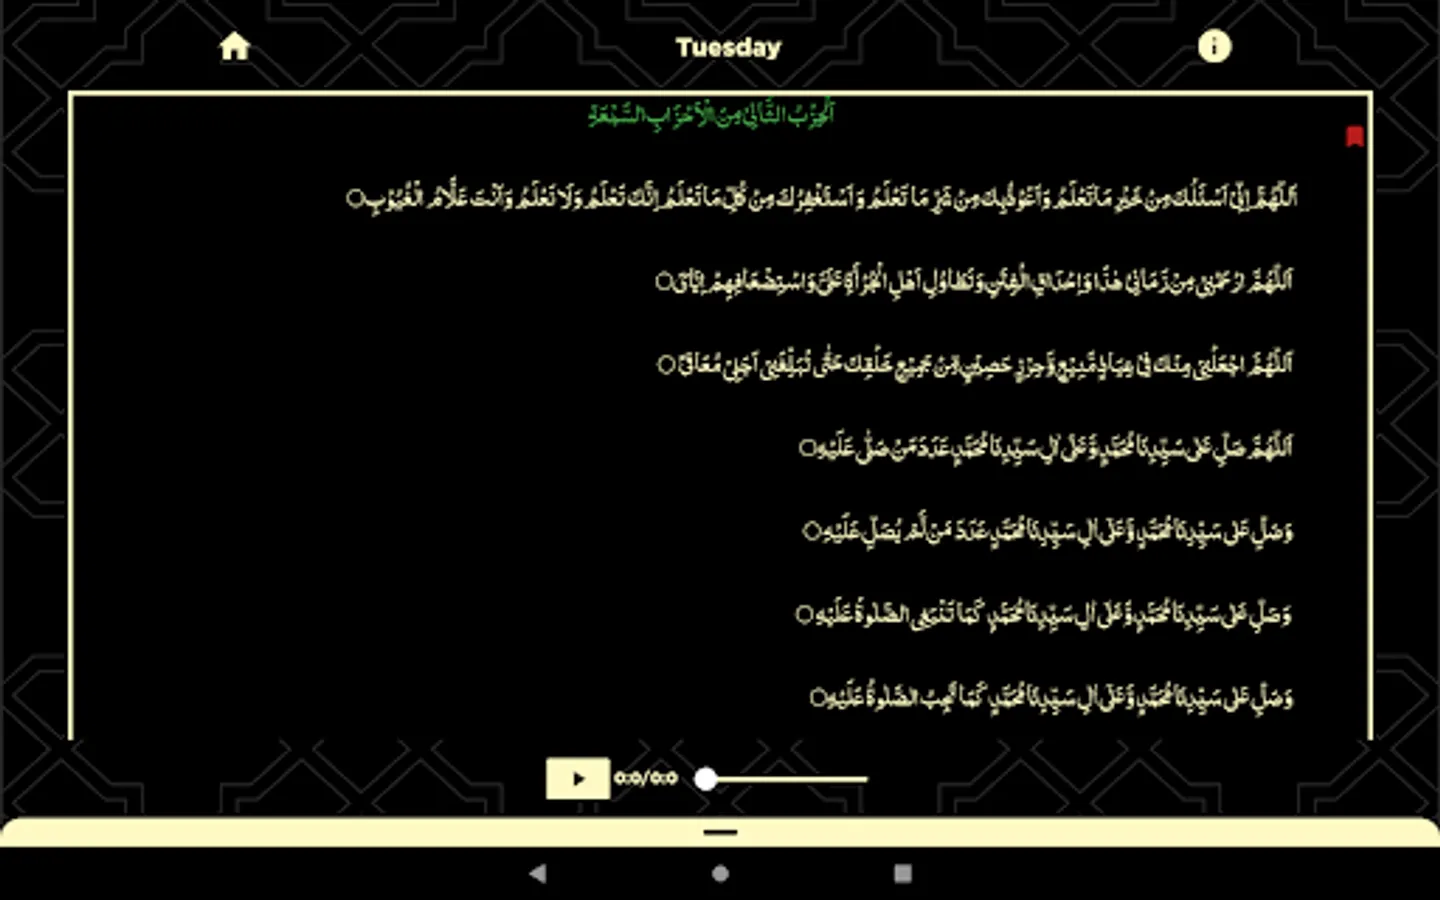 Tuesday
اَلْحِزْبُ الثَّانِیْ مِنَ الْاَحْزَابِ السَّبْعَةِ
اَللّٰهُمَّ اِنِّیْ اَسْئَلُكَ مِنْ خَیْرِ مَا تَعْلَمُ وَاَعُوْذُبِكَ مِنْ شَرِّ مَا تَعْلَمُ وَ اَسْتَغْفِرُكَ مِنْ كُلِّ مَا تَعْلَمُ اِنَّكَ تَعْلَمُ وَلَا نَعْلَمُ وَاَنْتَ عَلَّامُ الْغُیُوْبِ○
اَللّٰهُمَّ ارْحَمْنِیْ مِنْ زَمَانِیْ هٰذَا وَاِحْدَاقِ الْفِتَنِ وَتَطَاوُلِ اَهْلِ الْجُرْأَةِ عَلَیَّ وَاسْتِضْعَافِهِمْ اِیَّایَ○
اَللّٰهُمَّ اجْعَلْنِیْ مِنْكَ فِیْ عِیَاذٍ مَّنِیْعٍ وَّحِرْزٍ حَصِیْنٍ مِّنْ جَمِیْعِ خَلْقِكَ حَتّٰی تُبَلِّغَنِیْ اَجَلِیْ مُعَافًی○
اَللّٰهُمَّ صَلِّ عَلٰی سَیِّدِنَا مُحَمَّدٍ وَّعَلٰی اٰلِ سَیِّدِنَا مُحَمَّدٍ عَدَدَ مَنْ صَلّٰی عَلَیْهِ○
وَصَلِّ عَلٰی سَیِّدِنَا مُحَمَّدٍ وَّعَلٰی اٰلِ سَیِّدِنَا مُحَمَّدٍ عَدَدَ مَنْ لَّمْ یُصَلِّ عَلَیْهِ○
وَصَلِّ عَلٰی سَیِّدِنَا مُحَمَّدٍ وَّعَلٰی اٰلِ سَیِّدِنَا مُحَمَّدٍ كَمَا تَنْۢبَغِی الصَّلٰوةُ عَلَیْهِ○
وَصَلِّ عَلٰی سَیِّدِنَا مُحَمَّدٍ وَّعَلٰی اٰلِ سَیِّدِنَا مُحَمَّدٍ كَمَا تَجِبُ الصَّلٰوةُ عَلَیْهِ○
0:0/0:0